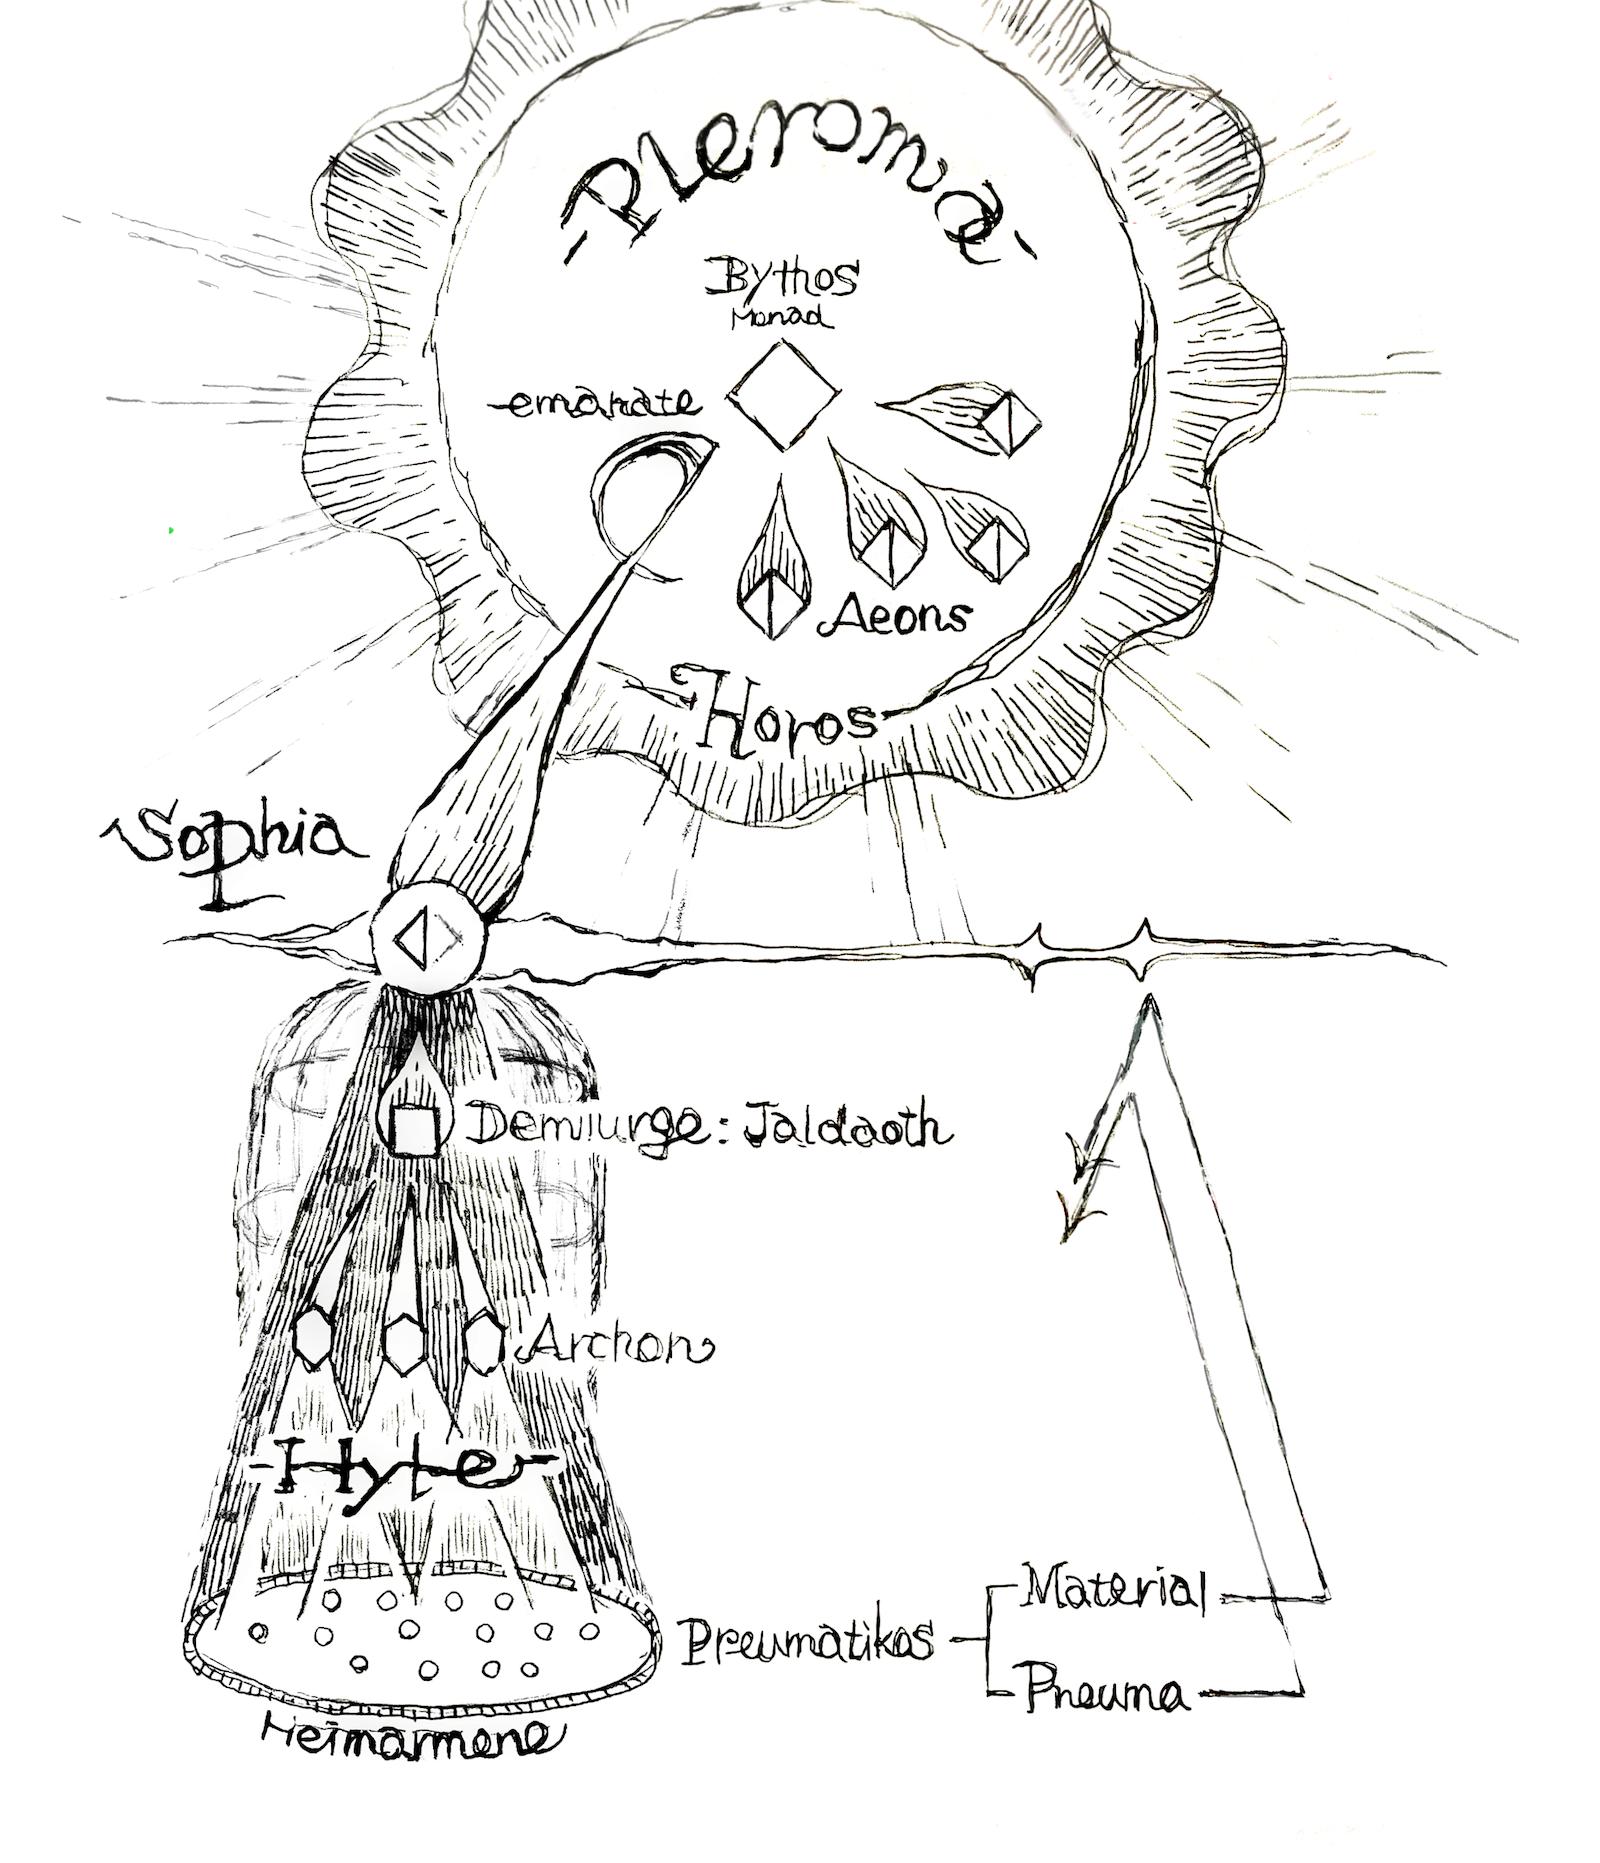 -Pleroma-
Bythos
Monad
-emanate
Aeons
-Horos-
Sophia
Demiurge: Jaldaoth
Archon
-Hyle-
Pneumatikos
Material
Pneuma
Heimarmene